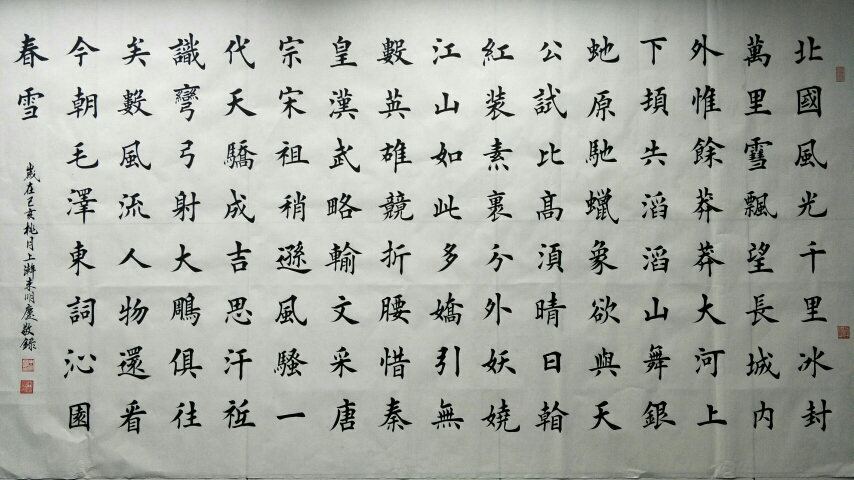 北國風光千里冰封
萬里雪飄望長城內
外惟餘莽莽大河上
下頓失滔滔山舞銀
虵原馳蠟象欲與天
公試比高須晴日看
紅裝素裹分外妖嬈
江山如此多嬌引無
數英雄競折腰惜秦
皇漢武略輸文采唐
宗宋祖稍遜風騷一
代天驕成吉思汗祗
識彎弓射大鵰俱往
矣數風流人物還看
今朝毛澤東詞沁園
春雪
歲在己亥桃月上澣朱明慶敬錄